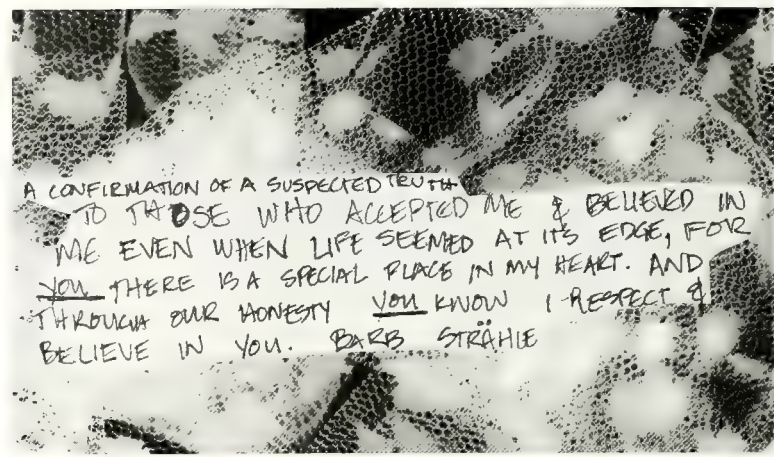 A CONFIRMATION OF A SUSPECTED TRUTH
TO THOSE WHO ACCEPTED ME & BELIEVED IN
ME EVEN WHEN LIFE SEEMED AT ITS EDGE, FOR
YOU THERE IS A SPECIAL PLACE IN MY HEART. AND
THROUGH OUR HONESTY YOU KNOW I RESPECT &
BELIEVE IN YOU. BARB STRÄHLE